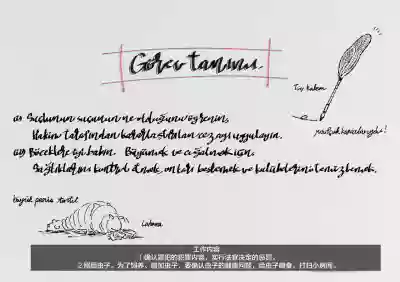 Görev tanımı.
Tüy kalem
(1) Suçlunun suçunun ne olduğunu öğrenin,
Hakim tarafından kararlaştırılan cezayı uygulayın.
(2) Böceklere iyi bakın. Büyümek ve çoğalmak için.
Sağlıklarını kontrol etmek, onları beslemek ve kulübelerini temizlemek.
büyük
Lahana
工作内容
1.确认罪犯的犯罪内容，实行法官决定的惩罚。
2.照顾虫子。为了饲养、增加虫子，要确认虫子的健康问题，给虫子喂食，打扫小房间。